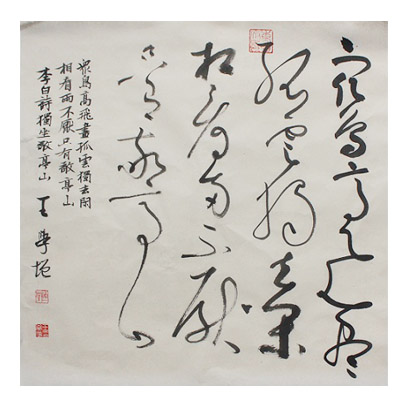 眾鳥高飛盡
孤雲獨去閑
相看兩不厭
只有敬亭山
眾鳥高飛盡孤雲獨去閑
相看兩不厭只有敬亭山
李白詩獨坐敬亭山 王學